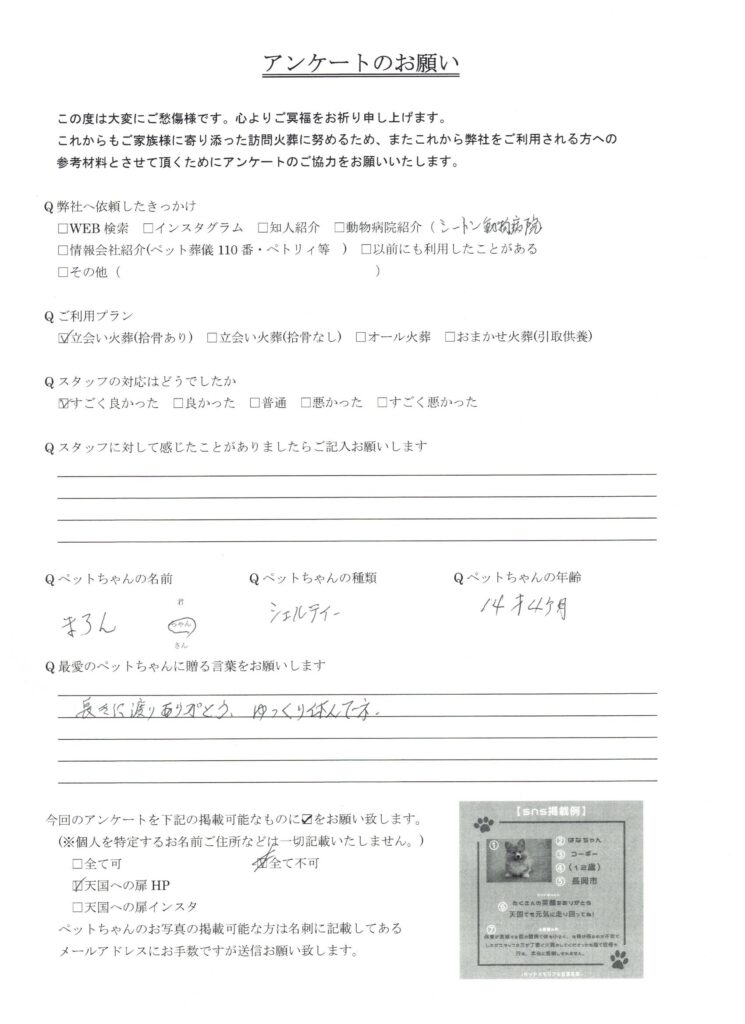 アンケートのお願い
この度は大変にご愁傷様です。心よりご冥福をお祈り申し上げます。
これからもご家族様に寄り添った訪問火葬に努めるため、またこれから弊社をご利用される方への
参考材料とさせて頂くためにアンケートのご協力をお願いいたします。
Q 弊社へ依頼したきっかけ
□WEB 検索 □インスタグラム □知人紹介 □動物病院紹介（シートン動物病院）
□情報会社紹介(ペット葬儀 110 番・ペトリィ等　) □以前にも利用したことがある
□その他（　　　　　　　　　　　　　　　　）
Q ご利用プラン
☑立会い火葬(拾骨あり) □立会い火葬(拾骨なし) □オール火葬 □おまかせ火葬(引取供養)
Q スタッフの対応はどうでしたか
☑すごく良かった □良かった □普通 □悪かった □すごく悪かった
Q スタッフに対して感じたことがありましたらご記入お願いします
Q ペットちゃんの名前　Q ペットちゃんの種類　Q ペットちゃんの年齢
君
まろん　ちゃん　シェルティー　14才4ヶ月
さん
Q 最愁のペットちゃんに贈る言葉をお願いします
長きに渡りありがとう、ゆっくり休んでネ.
今回のアンケートを下記の掲載可能なものに☑をお願い致します。
(※個人を特定するお名前ご住所などは一切記載いたしません。)
□全て可　☑全て不可
☑天国への扉 HP
□天国への扉インスタ
ペットちゃんのお写真の掲載可能な方は名刺に記載してある
メールアドレスにお手数ですが送信お願い致します。
【sns掲載例】
① ② はなちゃん
③ コーギー
④ (12歳)
⑤ 長岡市
⑥ たくさんの笑顔をありがとう
天国でも元気に走り回ってね!
⑦